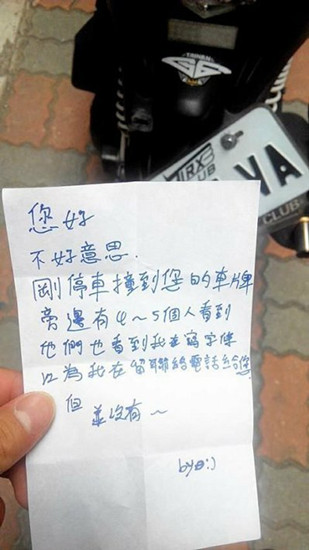 TAIWAN
TIRX
CLUB
VA
CLUB
您好
不好意思.
剛停車撞到您的車牌
旁邊有4~5個人看到
他們也看到我在寫字條
以為我在留聯絡電話給您
但
並沒有~
by